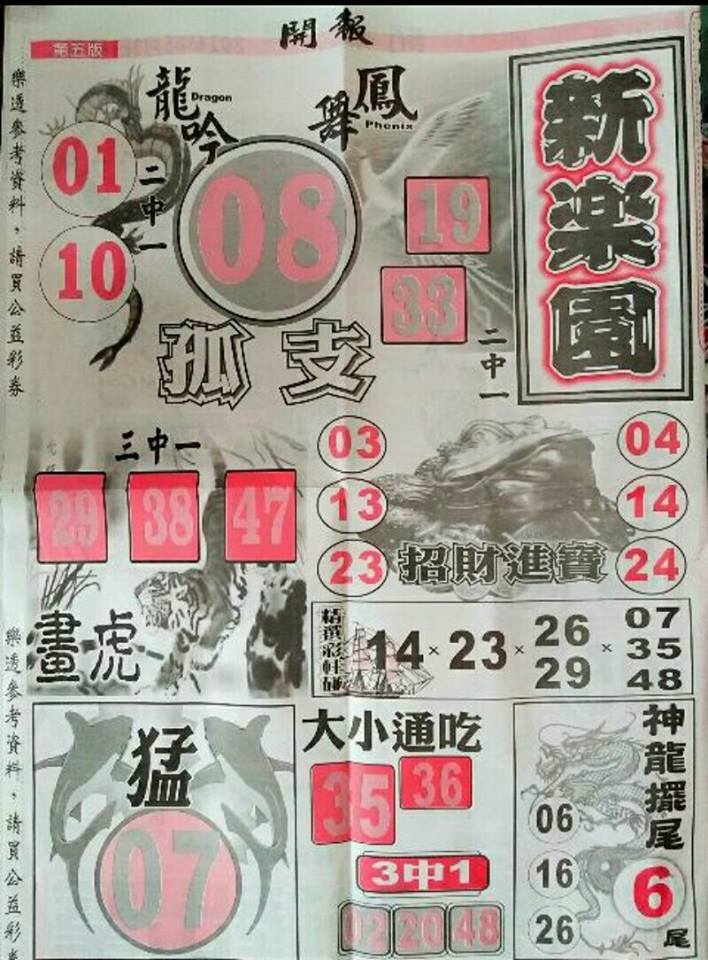 開報
第五版
樂透參考資料，請買公益彩券
龍吟
Dragon
鳳舞
Phenix
新楽園
01
10
二中一
08
19
33
二中一
孤支
三中一
29 38 47
畫虎
03
13
23
04
14
24
招財進寶
精選彩柱碰
14 × 23 × 26 29 × 07 35 48
樂透參考資料，請買公益彩券
猛
07
大小通吃
35 36
3中1
02 20 48
神龍擺尾
06
16
26
6
尾